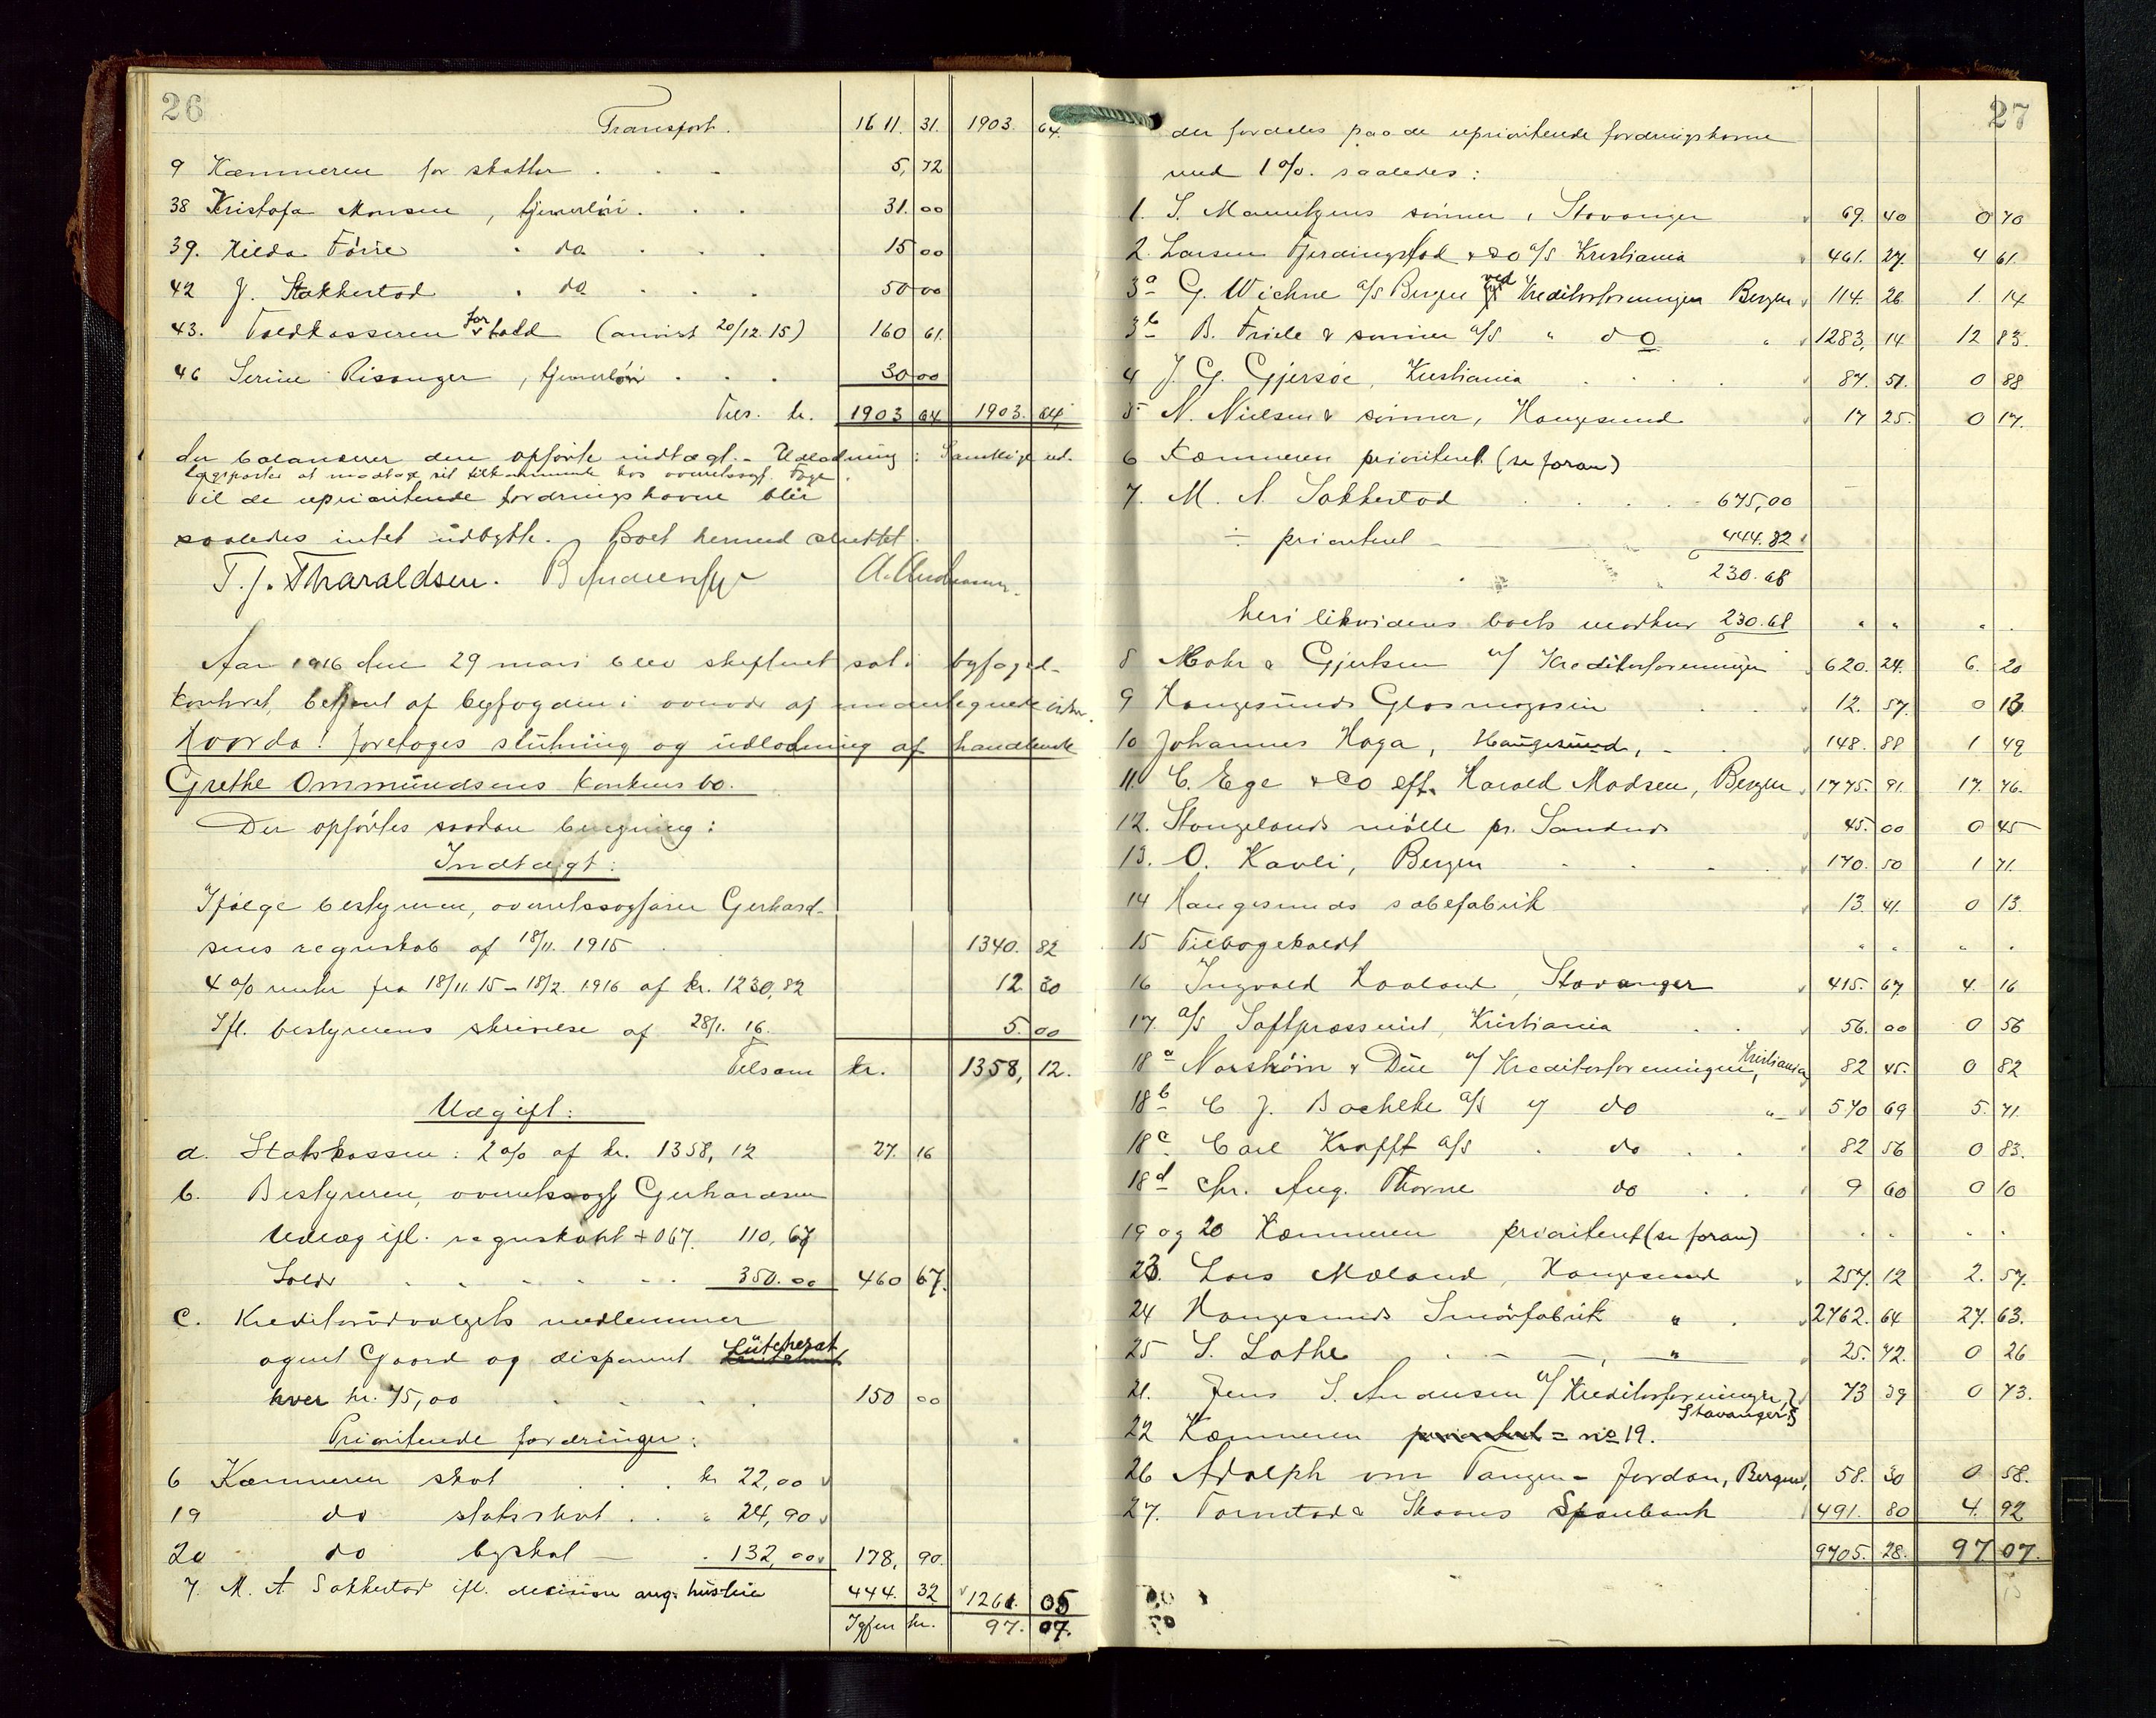 26
Transport. 1611. 31. 1903. 64.
9 Kæmneren for skatter . . . 5, 72
38 Kristofa Monsen, tjenerløn . . . 31. 00
39. Hilda Førre . do. . . . 15 00
42 J. Stakkestad . do . . . 50 00
43. Toldkasseren for told (anvist 20/12. 15) 160 61.
46 Serine Risanger, tjenerløn . . . 30 00
Tils. kr. 1903 64 1903. 64
der balanserer den opførte indtægt. - Udlodning: Samtlige ud-
lægsposter at modtage sit tilkommende hos overretssagf.
Til de uprioriterede fordringshavere blir
saaledes intet udbytte. Boet hermed sluttet.
T. J. Tharaldsen. A. Andreassen.
Aar 1916 den 29 mars blev skifteret sat i byfoged-
kontoret, betjent af byfogden i overvær af undertegnede vidner.
Hvorda! foretoges slutning og udlodning af handlende
Grethe Ommundsens konkursbo.
Der opførtes saadan beregning:
Indtægt:
Ifølge bestyreren, overretssagfører Gerhard-
sens regnskab af 18/11. 1915 1340. 82
4 o/o renter fra 18/11. 15 - 18/2. 1916 af kr. 1230,82 12. 30
Ifl. bestyrerens skrivelse af 28/1. 16. 5. 00
Tilsam kr. 1358, 12.
Udgift:
a. Statskassen: 2 o/o af kr. 1358, 12 27. 16
b. Bestyreren, overretssagf. Gerhardsen
Udlæg ifl. regnskabet + 0 67. 110, 67
Salær . . . . . 350. 00 460 67.
c. Kreditorudvalgets medlemmer
agent Gaard og disponent Lütcherat
hver kr. 75,00 . . . . 150 00
Prioriterede fordringer:
6 Kæmneren skat . . . kr 22,00
19 do statsskat . . " 24,90
20 do byskat — . 132,00 178, 90.
7. M. A. Sakkestad ifl. decision ang. husleie 444. 32 1261. 05
Igjen kr. 97. 07.
27
der fordeles paa de uprioriterede fordringshavere
med 1 o/o. saaledes:
1. S. Mauritzens sønner, Stavanger 69. 40 0 70
2. Larsen Fjerdingstad & Co a/s Kristiania 461. 27. 4 61.
3a G. Wichne a/s Bergen ved Kreditorforeningen Bergen 114. 26 1. 14
3b B. Friele & sønner a/s " do " 1283, 14 12 83.
4 J. G. Gjersøe, Kristiania . . . 87. 51. 0 88
5 N. Nielsen & sønner, Haugesund 17 25. 0 17.
6 Kæmneren prioritert (se foran)
7. M. A. Sakkestad . . . 675,00
÷ prioritert — 444. 32
230. 68
heri likvideres boets modkrav 230. 68 " " " .
8 Mohr & Gjertsen v/ Kreditorforeningen 620. 24. 6. 20
9 Haugesunds Glasmagasin . . . 12. 57. 0 13.
10 Johannes Haga, Haugesund, - . 148. 88 1 49
11. C. Ege & Co eft. Harald Madsen, Bergen 1775. 91. 17. 76.
12. Stangelands mølle pr. Sandnes 45. 00 0 45
13. O. Kavli, Bergen . . . 170. 50 1 71.
14 Haugesunds sæbefabrik 13. 41. 0 13.
15 Tilbagekaldt " " " .
16 Ingvald Haaland, Stavanger 415. 67. 4. 16
17. a/s Saftpresseriet, Kristiania . . 56. 00 0 56
18a Norstrøm & Due v/ Kreditorforeningen, Kristiania 82 45. 0 82
18b C J. Bachke a/s v/ do " 570 69 5. 71.
18c Carl Krafft a/s . do . . . 82 56 0 83.
18d Chr. Aug. Thorne do . . 9 60 0 10
19 og 20 Kæmneren prioritert (se foran) . . . .
23. Lars Mæland, Haugesund 257. 12 2. 57.
24 Haugesunds Smørfabrik " . 2762. 64 27. 63.
25 S. Lothe . — —, " 25. 72. 0 26
21. Jens S. Andersen v/ Kreditorforeningen, Stavanger 73 39 0 73.
22 Kæmneren = no 19.
26 Adolph von Tangen - Jordan, Bergen, 58. 30 0 58.
27. Torvestad & Skaares Sparebank 491. 80 4. 92
9705. 28. 97 07.